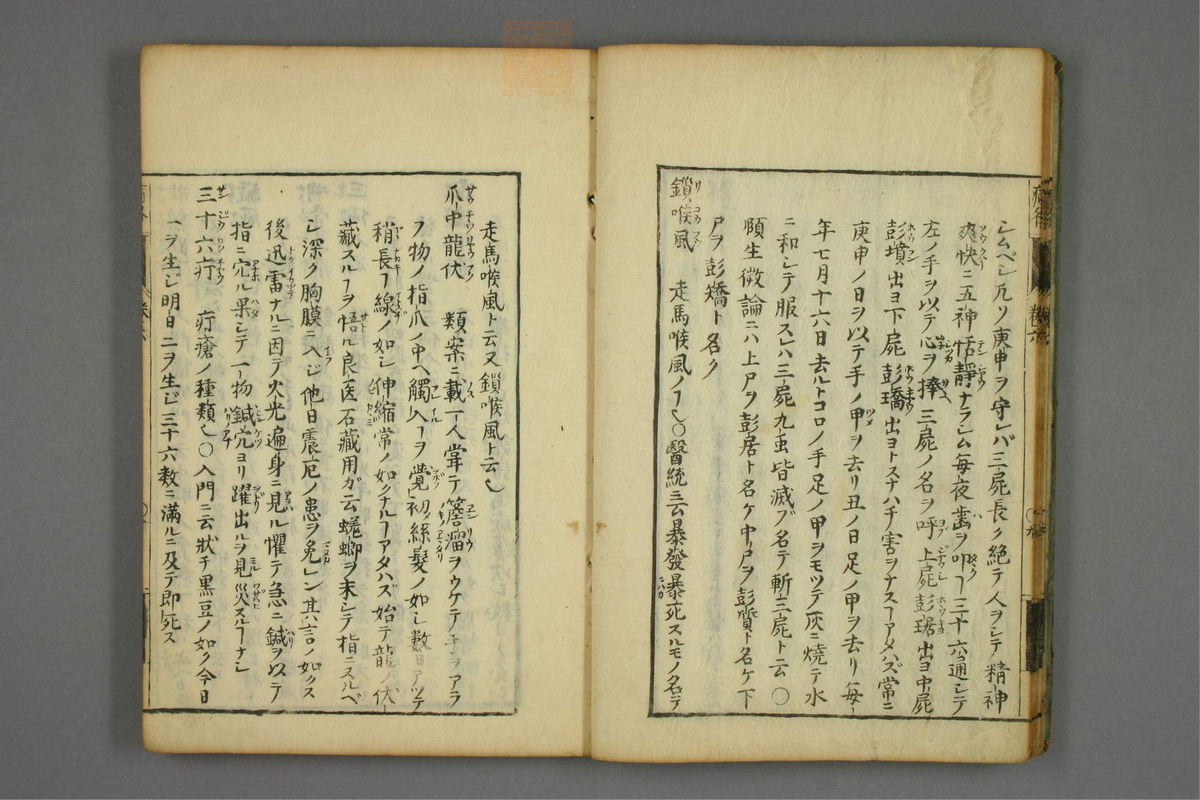 シムベシ凡ソ庚申ヲ守レバ三屍長ク絶テ人ヲシテ精神
爽快ニ五神恬靜ナラシム毎夜歯ヲ叩ヿ三十六通シテ
左ノ手ヲ以テ心ヲ捧三屍ノ名ヲ呼上屍彭琚出ヨ中屍
彭墳出ヨ下屍彭璚出ヨトスナハチ害ヲナスヿアタハズ常ニ
庚申ノ日ヲ以テ手ノ甲ヲ去リ丑ノ日足ノ甲ヲ去リ毎
年七月十六日去ルトコロノ手足ノ甲ヲモツテ灰ニ焼テ水
ニ和シテ服スレハ三屍九虫皆滅ブ名テ斬三屍ト云〇
頥生微論ニハ上尸ヲ彭居ト名ケ中尸ヲ彭質ト名ケ下
尸ヲ彭矯ト名ク
鎖喉風 走馬喉風ノ〇醫統ニ云暴發暴死スルモノ名テ
走馬喉風ト云又鎖喉風ト云
爪中龍伏 類案ニ載一人甞テ簷溜ヲウケテ手ヲアラ
フ物ノ指爪ノ中ヘ觸入ヿヲ覺初絲髮ノ如シ數日アツテ
稍長ヿ線ノ如シ伸縮常ノ如クナルヿアタハズ始テ龍ノ伏
藏スルヿヲ悟ル良医石藏用ガ云蜣蜋ヲ末シテ指ニヌルベ
シ深ク胸膜ニ入ジ他日震厄ノ患ヲ免レン其言ノ如クス
後迅雷ナルニ因テ火光遍身ニ見ル懼テ急ニ鍼ヲ以テ
指ニ穴ル果シテ一物鍼穴ヨリ躍出ルヲ見災スルヿナシ
三十六疔 疔瘡ノ種類〇入門ニ云狀チ黒豆ノ如ク今日
一ヲ生ジ明日二ヲ生ジ三十六数ニ満ルニ及テ即死ス